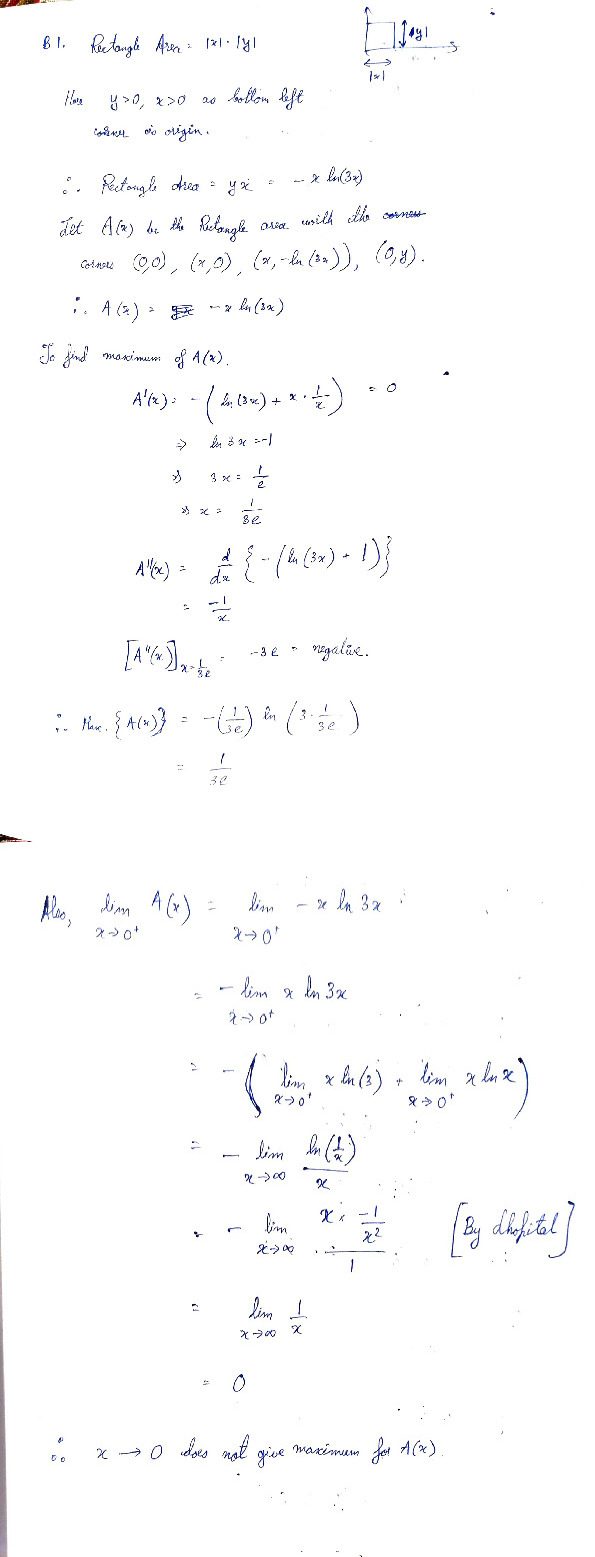 B1. Rectangle Area = |x|·|y|
|y|
|x|
Here y>0, x>0 as bottom left
corner is origin.
∴ Rectangle Area = yx = - x ln(3x)
Let A(x) be the Rectangle area with the corners
corners (0,0), (x,0), (x,-ln(3x)), (0,y).
∴ A(x) = yx -x ln(3x)
To find maximum of A(x).
A'(x) = -(ln(3x) + x · 1/x) = 0
⇒ ln 3x = -1
⇒ 3x = 1/e
⇒ x = 1/3e
A''(x) = d/dx {-(ln(3x) + 1)}
= -1/x
[A''(x)]x=1/3e = -3e = negative.
∴ Max. {A(x)} = -(1/3e) ln (3 · 1/3e)
= 1/3e
Also, lim x→0⁺ A(x) = lim x→0⁺ - x ln 3x
= - lim x→0⁺ x ln 3x
= - ( lim x→0⁺ x ln(3) + lim x→0⁺ x ln x )
= - lim x→∞ ln(1/x) / x
= - lim x→∞ x × -1/x² / 1 [By Lhopital]
= lim x→∞ 1/x
= 0
∴ x → 0 does not give maximum for A(x).